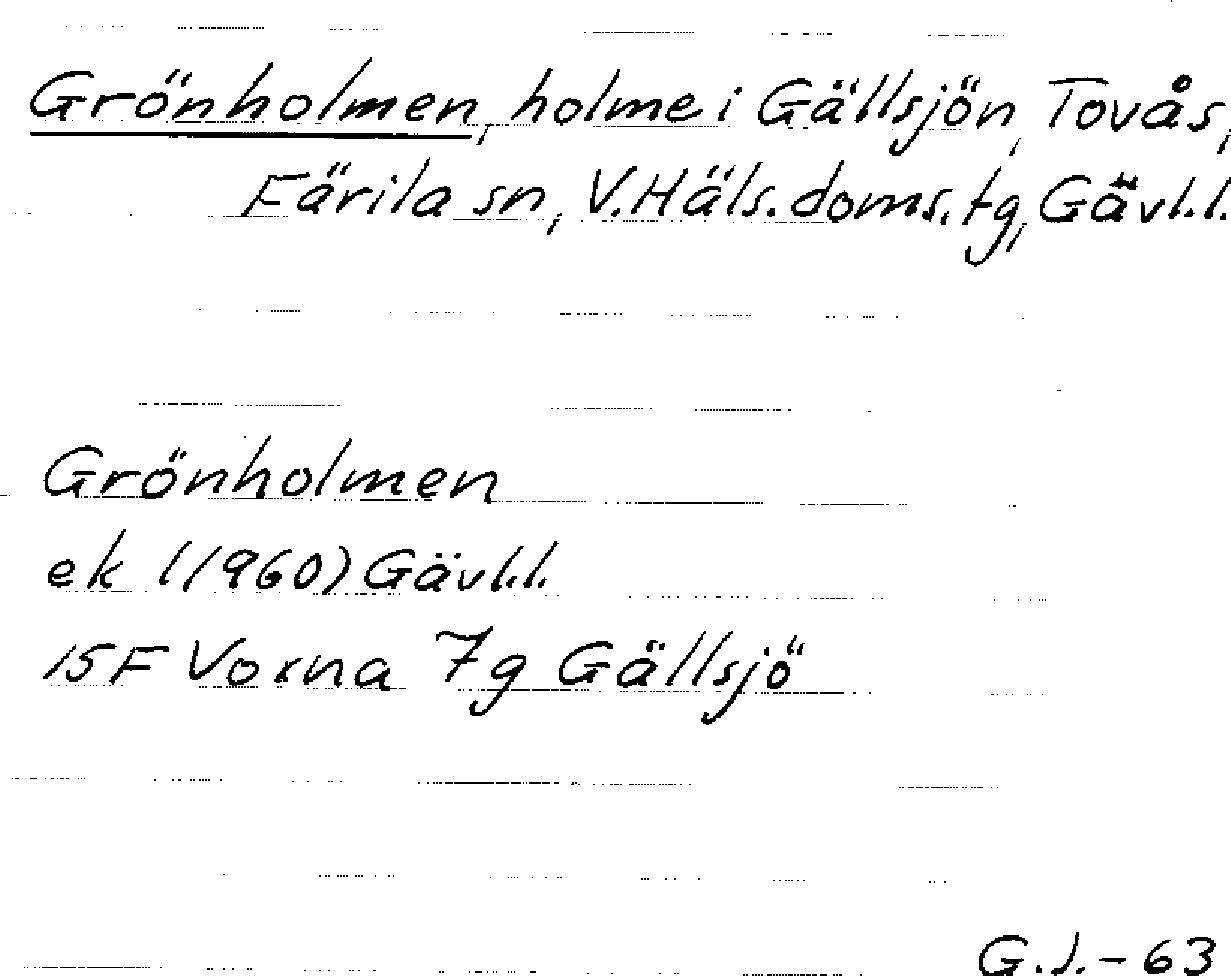 Grönholmen, holme i Gällsjön, Tovås,
Färila sn, V.Häls.doms.tg, Gävl.l.
Grönholmen
ek (1960) Gävl.l.
15F Voxna 7g Gällsjö
G.J.-63